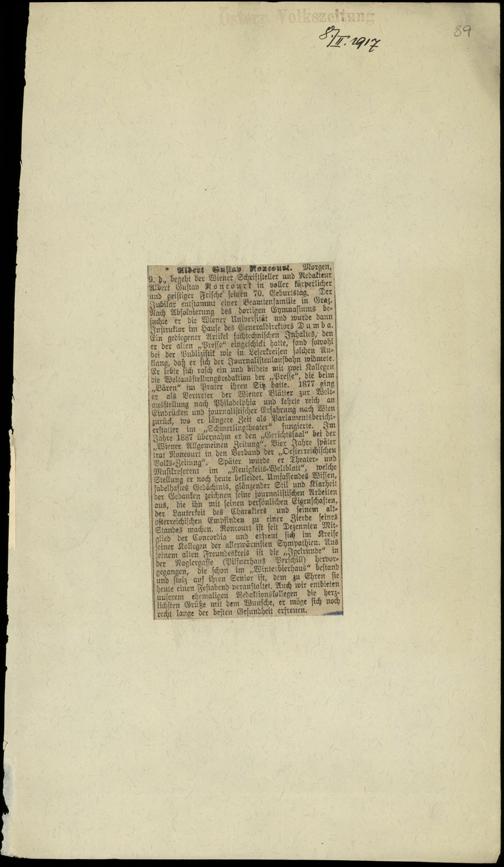 Österr. Volkszeitung
8./II. 1917
89
* Albert Gustav Roncourt. Morgen,
9. d., begeht der Wiener Schriftsteller und Redakteur
Albert Gustav Roncourt in voller körperlicher
und geistiger Frische seinen 70. Geburtstag. Der
Jubilar entstammt einer Beamtenfamilie in Graz.
Nach Absolvierung des dortigen Gymnasiums be-
suchte er die Wiener Universität und wurde dann
Instruktor im Hause des Generaldirektors Dumba.
Ein gediegener Artikel fachtechnischen Inhaltes, den
er der alten „Presse" eingeschickt hatte, fand sowohl
bei der Publizistik wie in Leserkreisen solchen An-
klang, daß er sich der Journalistenlaufbahn widmete.
Er lebte sich rasch ein und bildete mit zwei Kollegen
die Weltausstellungsredaktion der „Presse", die beim
„Bären" im Prater ihren Sitz hatte. 1877 ging
er als Vertreter der Wiener Blätter zur Welt-
ausstellung nach Philadelphia und kehrte reich an
Eindrücken und journalistischer Erfahrung nach Wien
zurück, wo er längere Zeit als Parlamentsbericht-
erstatter im „Schmerlingtheater" fungierte. Im
Jahre 1887 übernahm er den „Gerichtssaal" bei der
„Wiener Allgemeinen Zeitung". Vier Jahre später
trat Roncourt in den Verband der „Oesterreichischen
Volks-Zeitung". Später wurde er Theater- und
Musikreferent im „Neuigkeits-Weltblatt", welche
Stellung er noch heute bekleidet. Umfassendes Wissen,
fabelhaftes Gedächtnis, glänzender Stil und Klarheit
der Gedanken zeichnen seine journalistischen Arbeiten
aus, die ihn mit seinen persönlichen Eigenschaften,
der Lauterkeit des Charakters und seinem alt-
österreichischen Empfinden zu einer Zierde seines
Standes machen. Roncourt ist seit Dezennien Mit-
glied der Concordia und erfreut sich im Kreise
seiner Kollegen der allerwärmsten Sympathien. Aus
seinem alten Freundeskreis ist die „Igelrunde" in
der Naglergasse (Pilsnerhaus) hervor-
gegangen, die schon im „Winterbierhaus" bestand
und stolz auf ihren Senior ist, dem zu Ehren sie
heute einen Festabend veranstaltet. Auch wir entbieten
unserem ehemaligen Redaktionskollegen die herz-
lichsten Grüße mit dem Wunsche, er möge sich noch
recht lange der besten Gesundheit erfreuen.